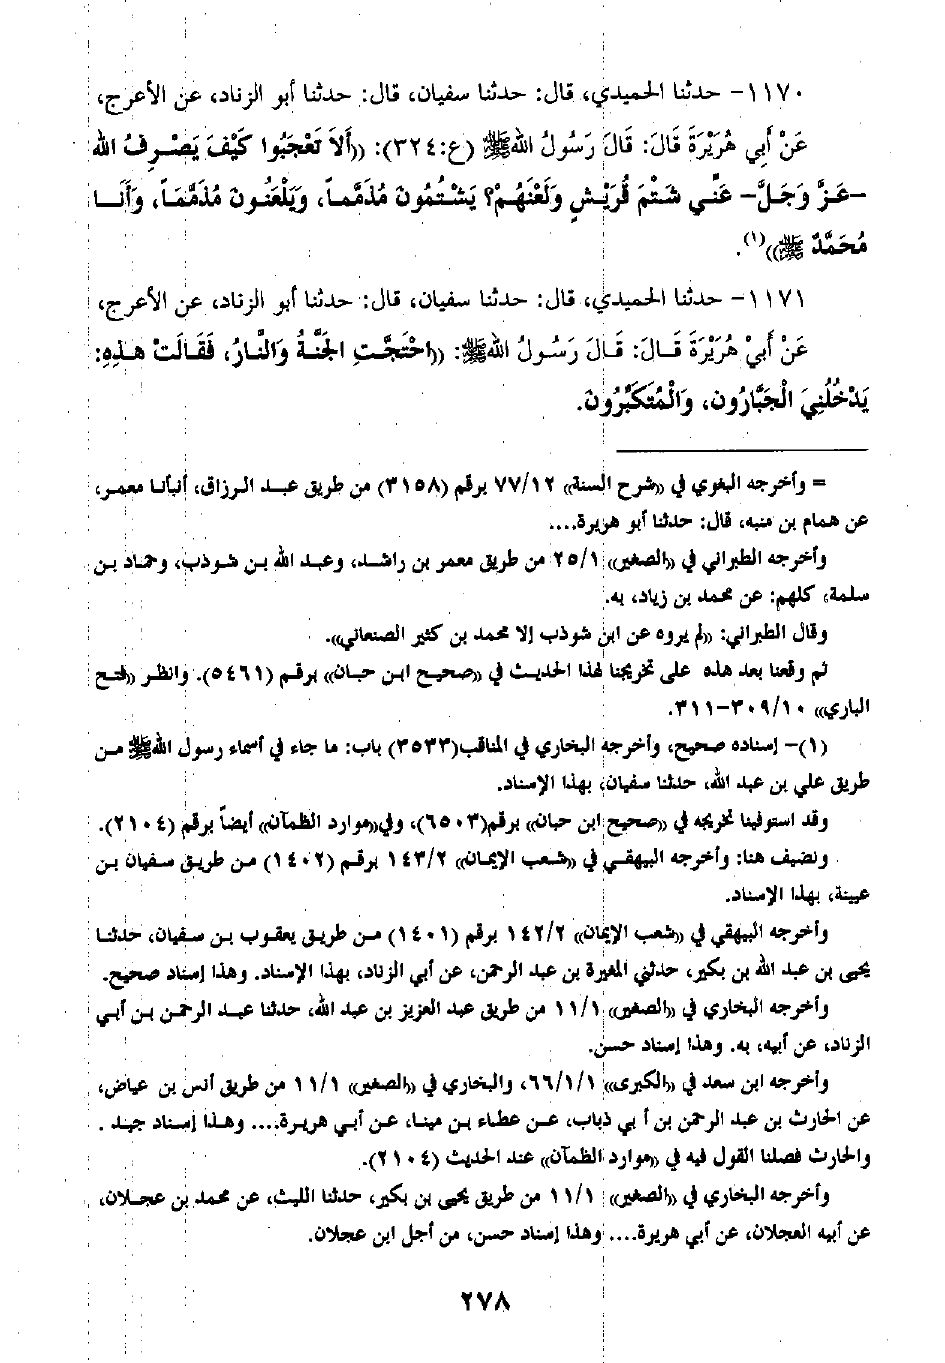 ١١٧٠- حدثنا الحميدي، قال: حدثنا سفيان، قال: حدثنا أبو الزناد، عن الأعرج،
عَنْ أَبِي هُرَيْرَةَ قَالَ: قَالَ رَسُولُ اللهﷺ (ع:٣٢٤): ((أَلاَ تَعْجَبُوا كَيْفَ يَصْرِفُ الله
-عَزَّ وَجَلَّ- عَنِّي شَتْمَ قُرَيْشٍ وَلَعْنَهُمْ؟ يَشْتُمُونَ مُذَمَّماً، وَيَلْعَنُونَ مُذَمَّمَاً، وَأَنَا
مُحَمَّدٌ ﷺ))(١).
١١٧١- حدثنا الحميدي، قال: حدثنا سفيان، قال: حدثنا أبو الزناد، عن الأعرج،
عَنْ أَبِيْ هُرَيْرَةَ قَالَ: قَالَ رَسُولُ اللهﷺ: ((احْتَجَّتِ الجَنَّةُ وَالنَّارُ، فَقَالَتْ هذِهِ:
يَدْخُلُنِيَ الْجَبَّارُونَ، وَالْمُتَكَبِّرُونَ.
= وأخرجه البغوي في ((شرح السنة)) ٧٧/١٢ برقم (٣١٥٨) من طريق عبد الرزاق، أنبأنا معمر،
عن همام بن منبه، قال: حدثنا أبو هريرة....
وأخرجه الطبراني في ((الصغير)) ٢٥/١ من طريق معمر بن راشد، وعبد الله بن شوذب، وحماد بن
سلمة، كلهم: عن محمد بن زياد، به.
وقال الطبراني: ((لم يروه عن ابن شوذب إلا محمد بن كثير الصنعاني)).
ثم وقعنا بعد هذه على تخريجنا لهذا الحديث في ((صحيح ابن حبان)) برقم (٥٤٦١). وانظر ((فتح
الباري)) ٣٠٩/١٠-٣١١.
(١)- إسناده صحيح، وأخرجه البخاري في المناقب(٣٥٣٣) باب: ما جاء في أسماء رسول اللهﷺ من
طريق علي بن عبد الله، حدثنا سفيان، بهذا الإسناد.
وقد استوفينا تخريجه في ((صحيح ابن حبان)) برقم(٦٥٠٣)، وفي((موارد الظمآن)) أيضاً برقم (٢١٠٤).
ونضيف هنا: وأخرجه البيهقي في ((شعب الإيمان)) ١٤٣/٢ برقم (١٤٠٢) من طريق سفيان بن
عيينة، بهذا الإسناد.
وأخرجه البيهقي في ((شعب الإيمان)) ١٤٢/٢ برقم (١٤٠١) من طريق يعقوب بن سفيان، حدثنا
يحيى بن عبد الله بن بكير، حدثني المغيرة بن عبد الرحمن، عن أبي الزناد، بهذا الإسناد. وهذا إسناد صحيح.
وأخرجه البخاري في ((الصغير)) ١١/١ من طريق عبد العزيز بن عبد الله، حدثنا عبد الرحمن بن أبي
الزناد، عن أبيه، به. وهذا إسناد حسن.
وأخرجه ابن سعد في ((الكبرى)) ٦٦/١/١، والبخاري في ((الصغير)) ١١/١ من طريق أنس بن عياض،
عن الحارث بن عبد الرحمن بن أ بي ذباب، عن عطاء بن مينا، عن أبي هريرة.... وهذا إسناد جيد .
والحارث فصلنا القول فيه في ((موارد الظمآن)) عند الحديث (٢١٠٤).
وأخرجه البخاري في ((الصغير)) ١١/١ من طريق يحيى بن بكير، حدثنا الليث، عن محمد بن عجلان،
عن أبيه العجلان، عن أبي هريرة.... وهذا إسناد حسن، من أجل ابن عجلان.
٢٧٨